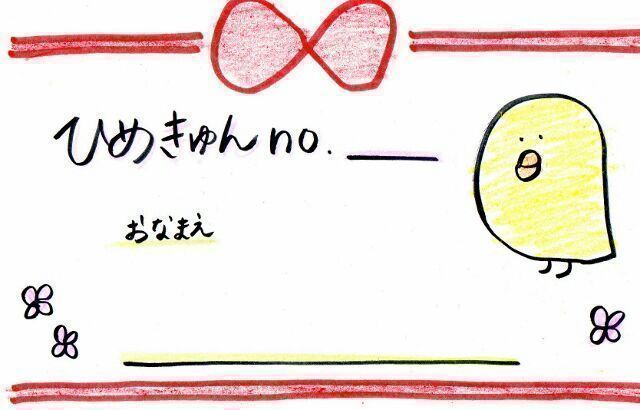 ひめきゅんno.
おなまえ